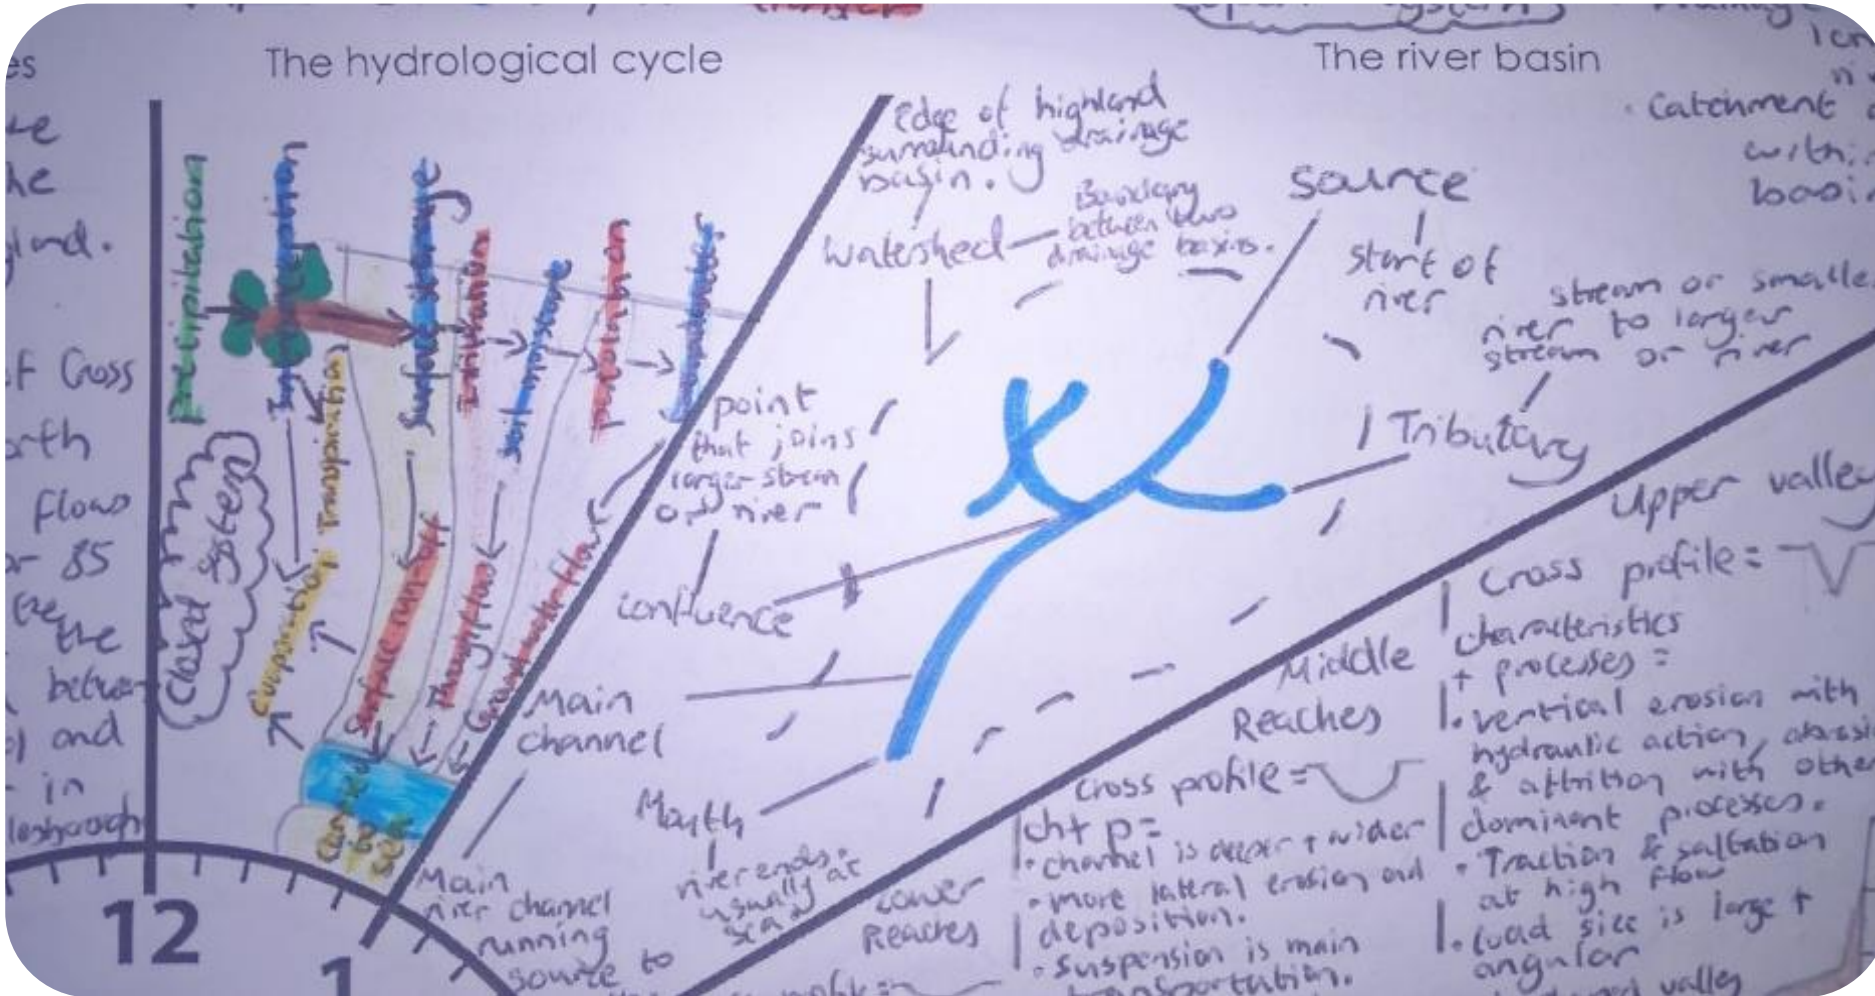 The hydrological cycle
The river basin
es
he
gland.
of Cross
orth
flows
or 85
the
betwe
and
in
lesbrough
precipitation
Interception
Surface storage
Infiltration
soil moisture
percolation
Groundwater
Transpiration
Evaporation
Surface run off
Throughflow
Groundwater flow
Closed System
Carried to sea
12
1
Edge of highland
surrounding drainage
basin.
Watershed
Boundary
between two
drainage basins.
Source
start of
river
stream or smaller
river to larger
stream or river
Tributary
point
that joins
larger stream
or river
confluence
Main
channel
Main
river channel
running
source to
Mouth
river ends.
usually at
sea
Catchment
within
basin
Upper valley
Cross profile =
characteristics
+ processes =
. vertical erosion with
hydraulic action, abrasi
& attrition with other
dominant processes.
. Traction & saltation
at high flow
. Load size is large +
angular
valley
Middle
Reaches
Cross profile =
ch+ p=
. channel is deeper + wider
. more lateral erosion and
deposition.
. Suspension is main
transportation.
Lower
Reaches